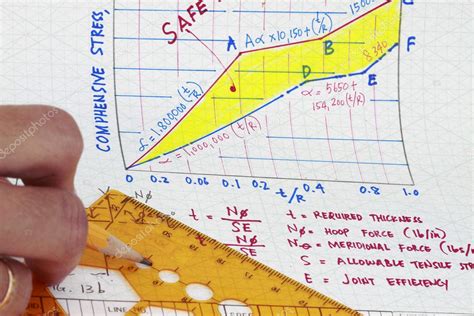 SAFE
COMPHENSIVE STRESS,
1500
A
Aα × 10,150 + (t/R)
B
8,340
F
D
E
α = 1,800,000 (t/R)
α = 5650 +
154,200 (t/R)
α = 1,000,000 (t/R)
0
0.2
0.06
0.1
0.2
0.4
0.8
1.0
t/R
NØ
t = NØ/SE
t = REQUIRED THICKNESS
NØ = HOOP FORCE (lbs/in)
= NØ/SE
NΘ = MERIDIONAL FORCE (lbs
S = ALLOWABLE TENSILE ST
E = JOINT EFFICIENCY
13b
LINE
depositphotos